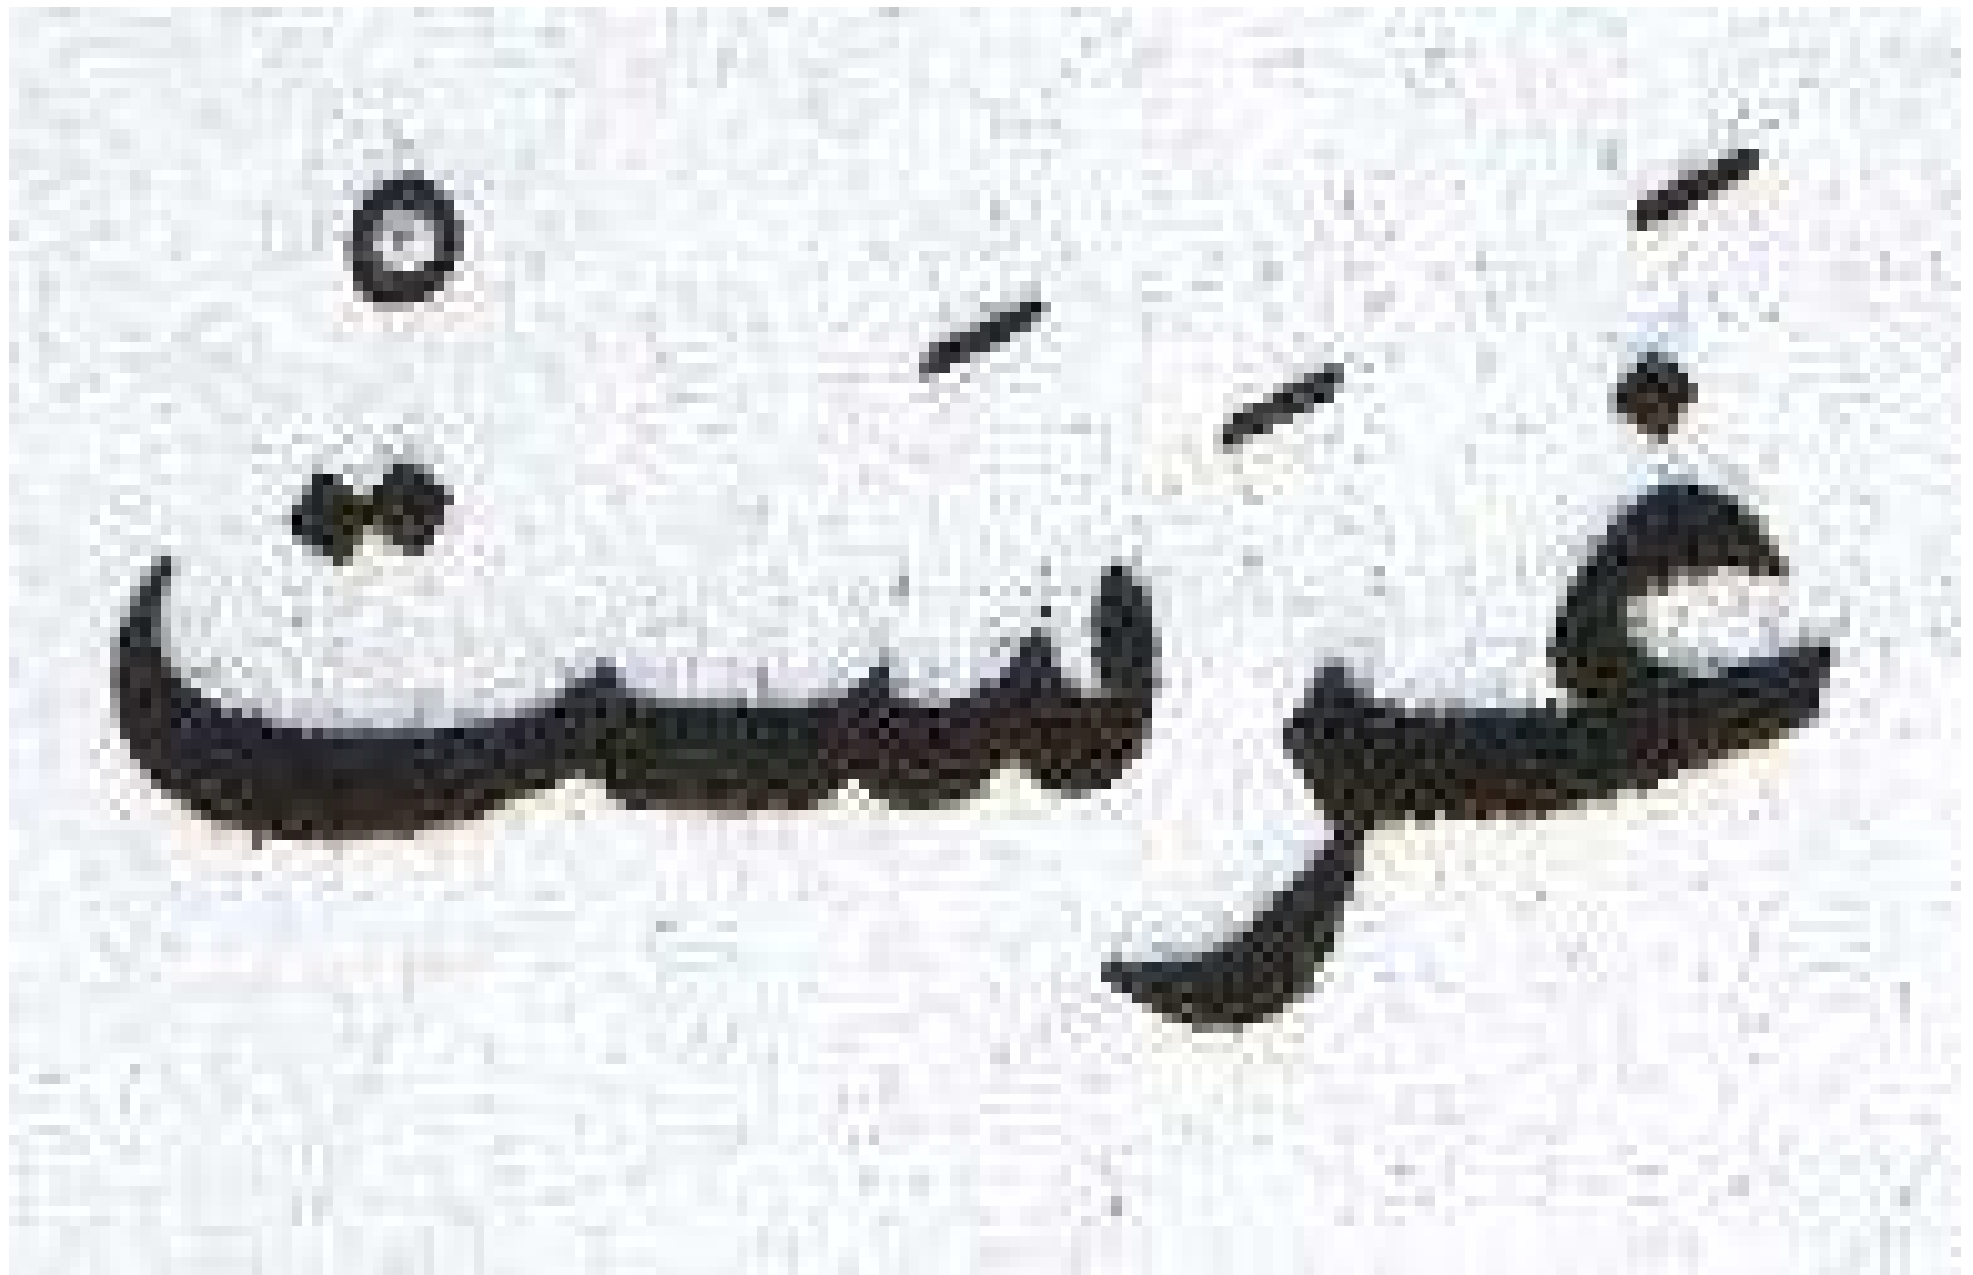 غَرَسَتْ